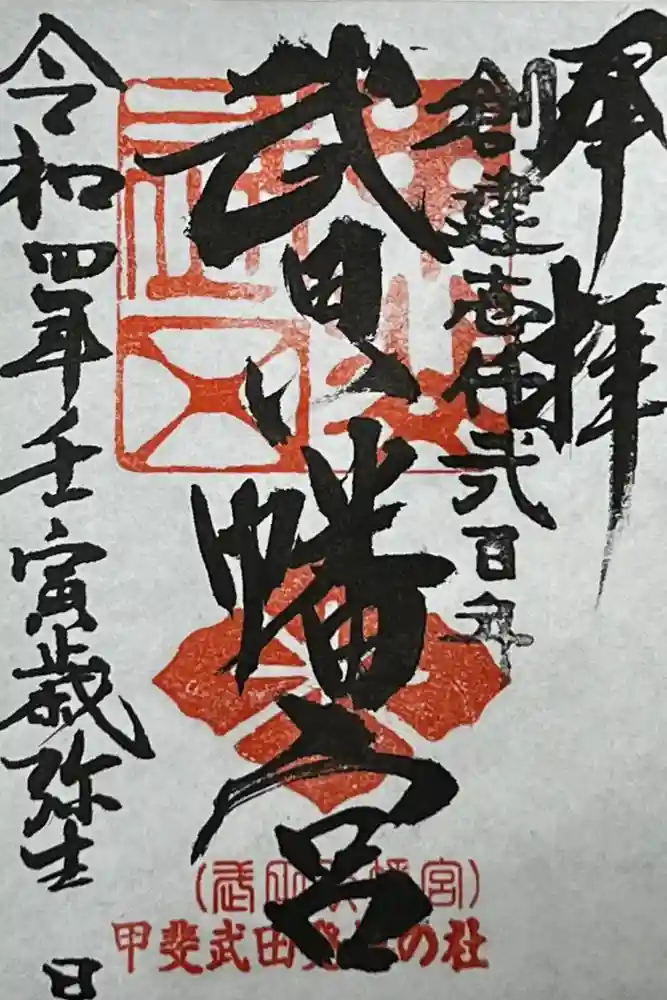 奉拝
創建壱仟弐百年
武田八幡宮
令和四年壬寅歳弥生 日
(武田八幡宮)
甲斐武田発祥の社